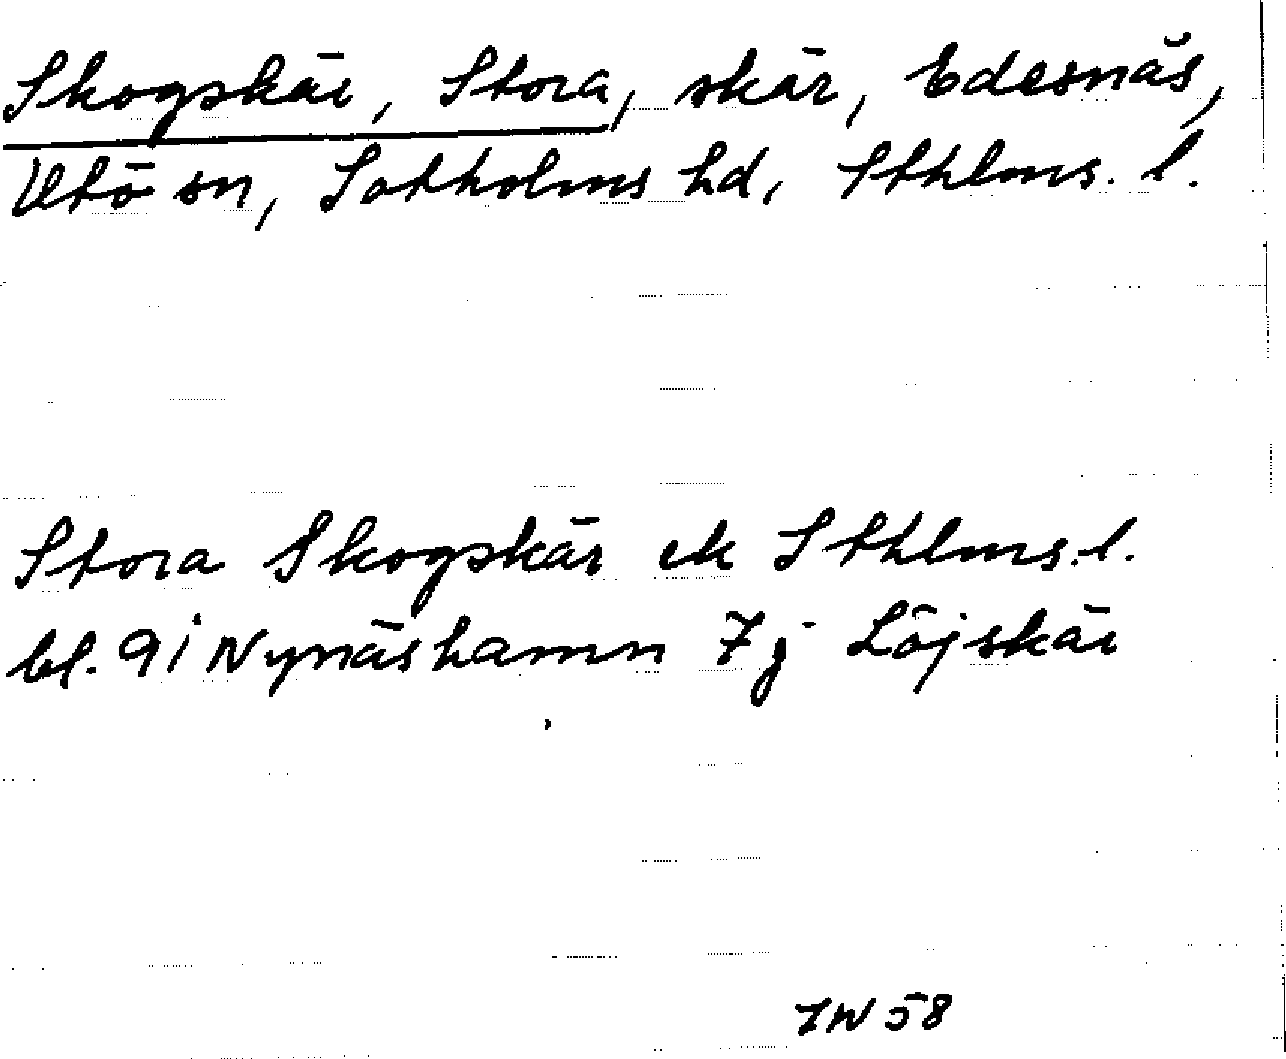 Skogskär, Stora, skär, Edesnäs,
Utö sn, Sotholms hd, Sthlms. l.
Stora Skogskär ek Sthlms. l.
bl. 9i Nynäshamn 7j Löjskär
IW 58